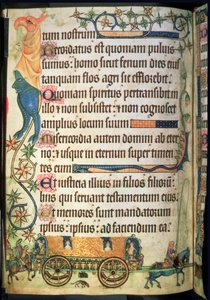 tum nostrum
Recordatus est quoniam puluis
sumus: homo sicut fenum dies eius
tanquam flos agri sic efflorebit.
Quoniam spiritus pertransibit in
illo et non subsistet: et non cognoscet
amplius locum suum
Misericordia autem domini ab eter
no: et usque in eternum super timen
tes eum
Et iusticia illius in filios filiorum:
hiis qui seruant testamentum eius
Et memores sunt mandatorum
ipsius: ipsius: ad faciendum ea.